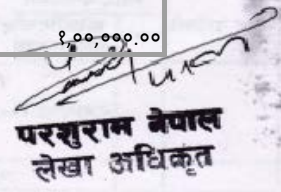 १,००,०००.००
परशुराम नेपाल
लेखा अधिकृत